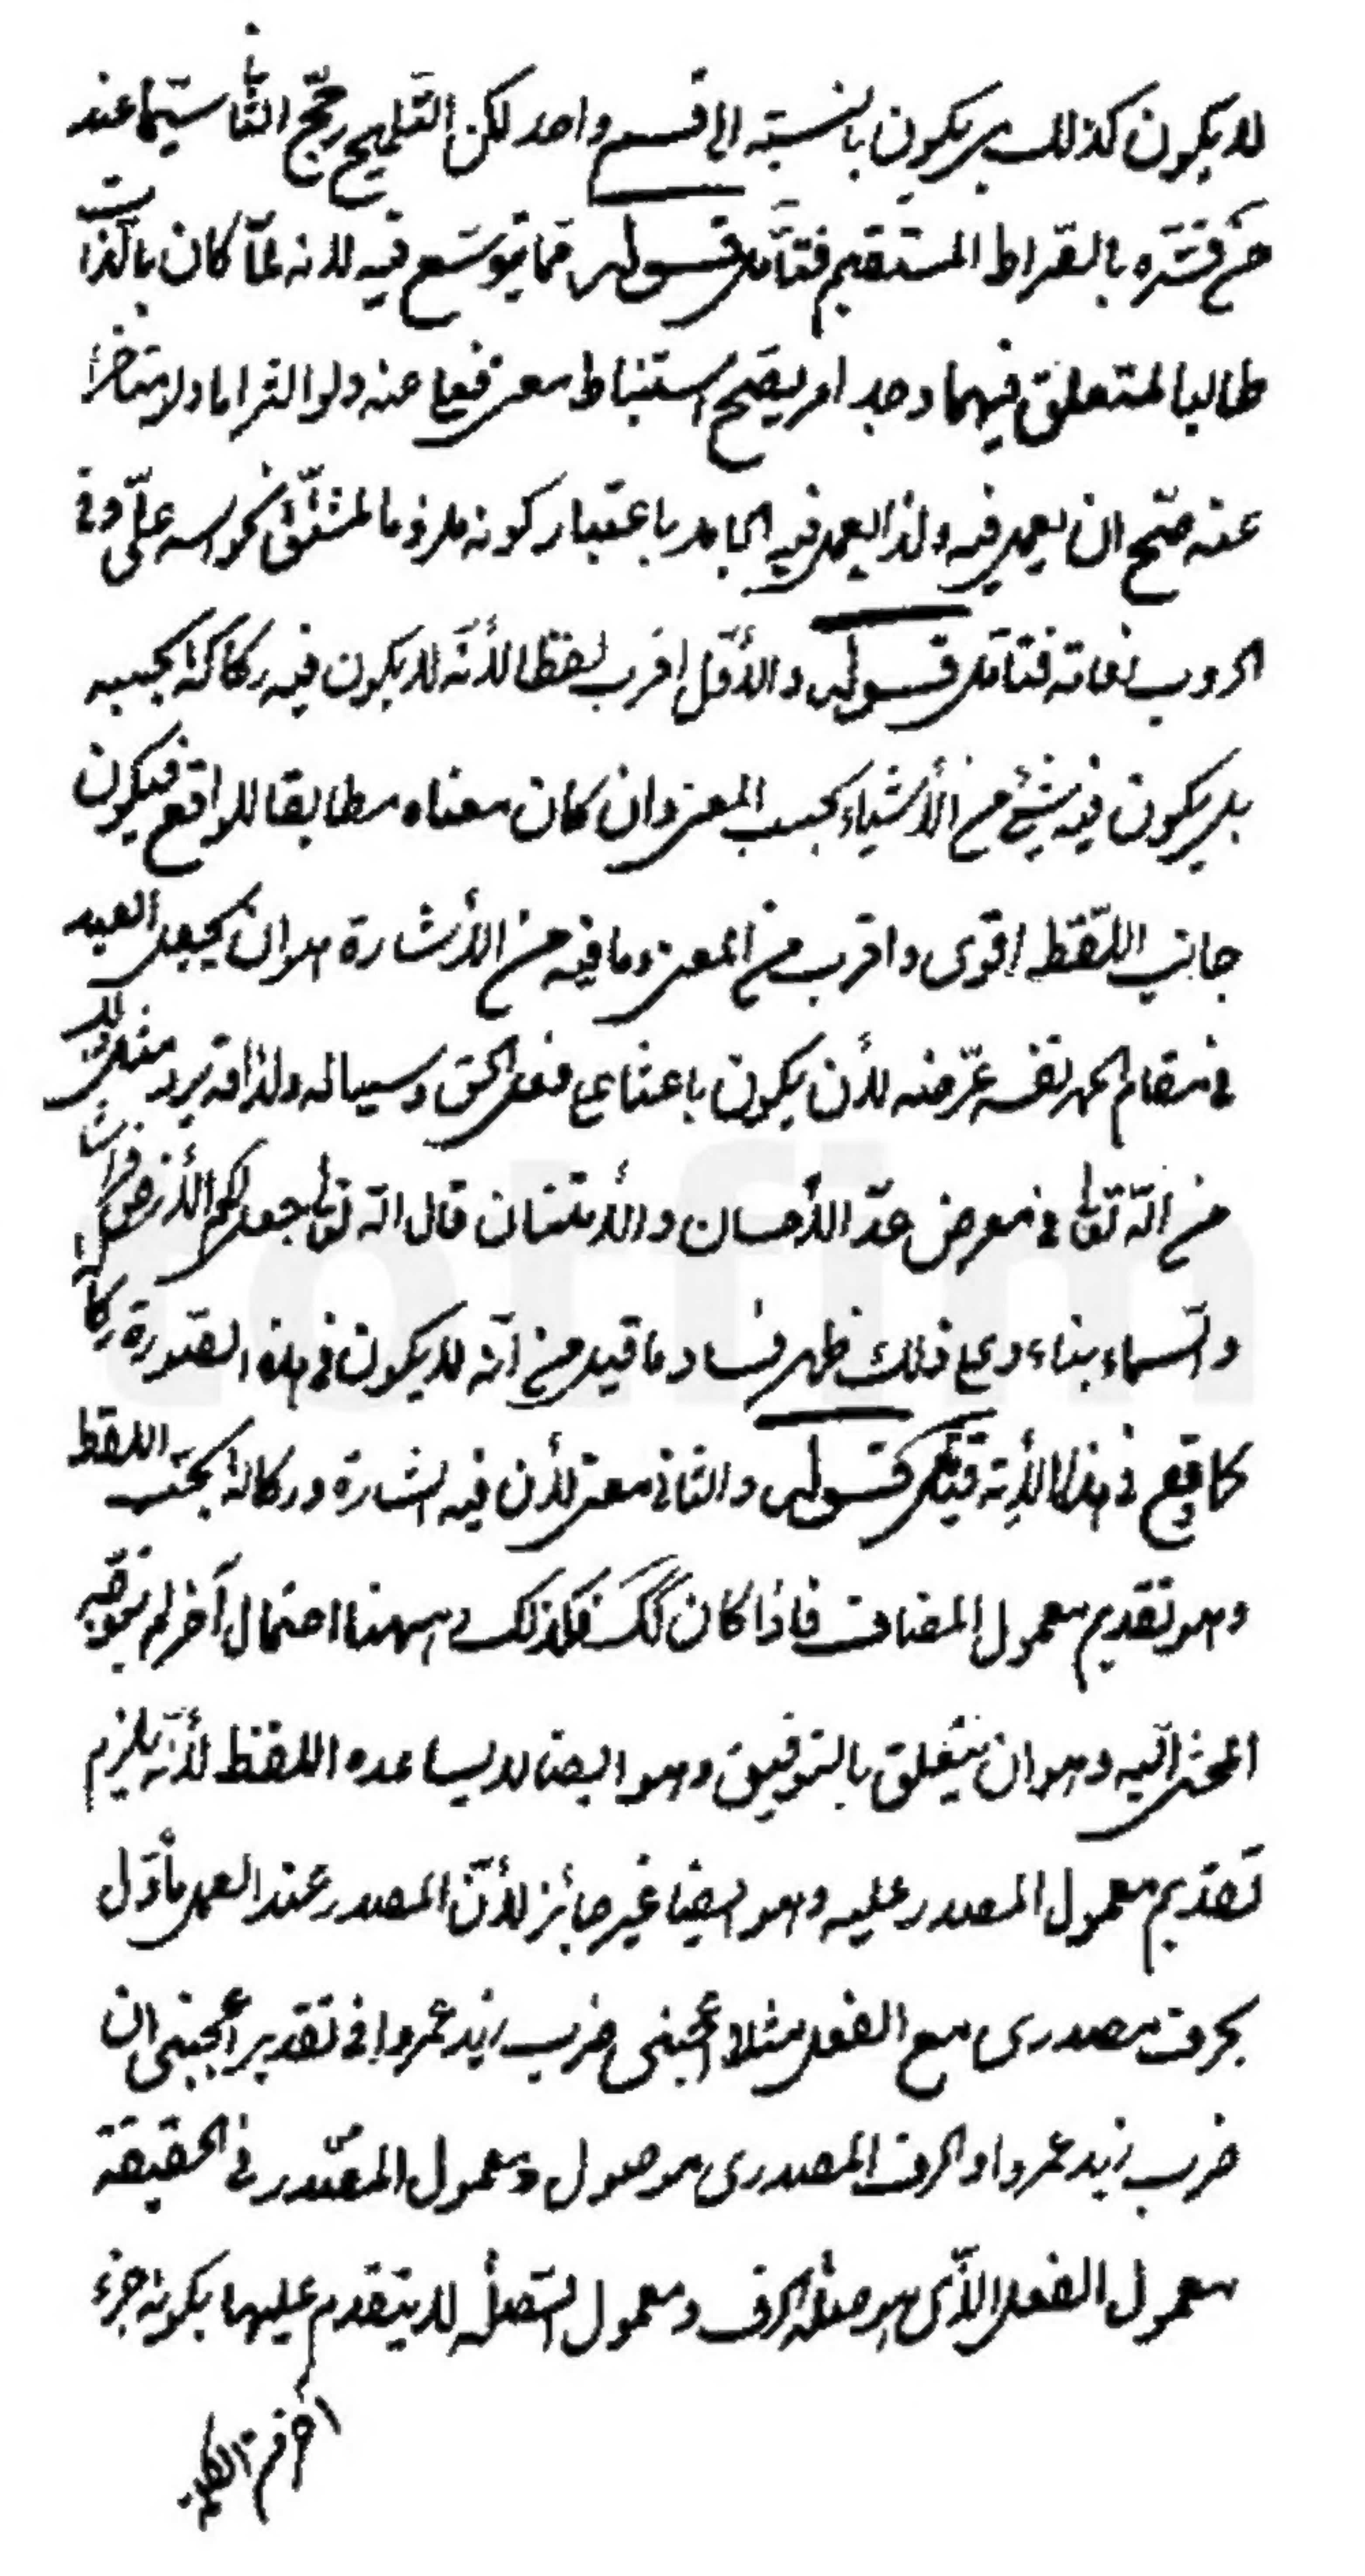 لا يكون كذلك بل يكون بالنسبة الى قسم واحد لكن التلميح رجح الثانى سيما عند
من فسره بالصراط المستقيم فتأمل قوله مما يتوسع فيه لانه لما كان بالذات
طالبا لمتعلق فيهما وجد امر يصح استنباط معنى فعل عنه ولو التزاما ولا متأخرا
عنه صح ان يعمل فيه ولذا يعمل فيه الجامد باعتبار كونه ملزوما لمشتق نحو اسد على وفى
الحروب نعامة فتأمل قوله والأول اقرب لفظا لأنه لا يكون فيه ركاكة بحسبه
بل يكون فيه شئ من الأشياء بحسب المعنى وان كان معناه مطابقا للواقع فيكون
جانب اللفظ اقوى واقرب من المعنى وما فيه من الأشارة هو ان يجعل العبد
فى مقام الحمد نفسه عرضة لأن يكون باعثا على فعل الحق وسيباله ولذا قد يرد مثل ذلك
من الله تعالى فى معرض عد الأحسان والأمتنان قال الله تعالى جعل لكم الأرض فراشا
والسماء بناء وعلى ذلك ظهر فساد ما قيل من انه لا يكون فى هذه الصورة ركاكة
كما وقع فى هذا الأية قيل قوله والثانى معنى لأن فيه اشارة وركاكة بحسب اللفظ
وهو تقديم معمول المضاف فاذا كان كك فكذلك وههنا احتمال آخر لم يتوجه
المحشى اليه وهو ان يتعلق بالتوفيق وهو ايضا لا يساعده اللفظ لأنه يلزم
تقديم معمول المصدر عليه وهو ايضا غير جائز لأن المصدر عند العمل مأول
بحرف مصدرى مع الفعل مثلا اعجبنى ضرب زيد عمروا فى تقدير اعجبنى ان
ضرب زيد عمروا والحرف المصدرى موصول ومعمول المصدر فى الحقيقة
معمول الفعل الذى هو صلة الحرف ومعمول الصلة لا يتقدم عليها بكونه جزء